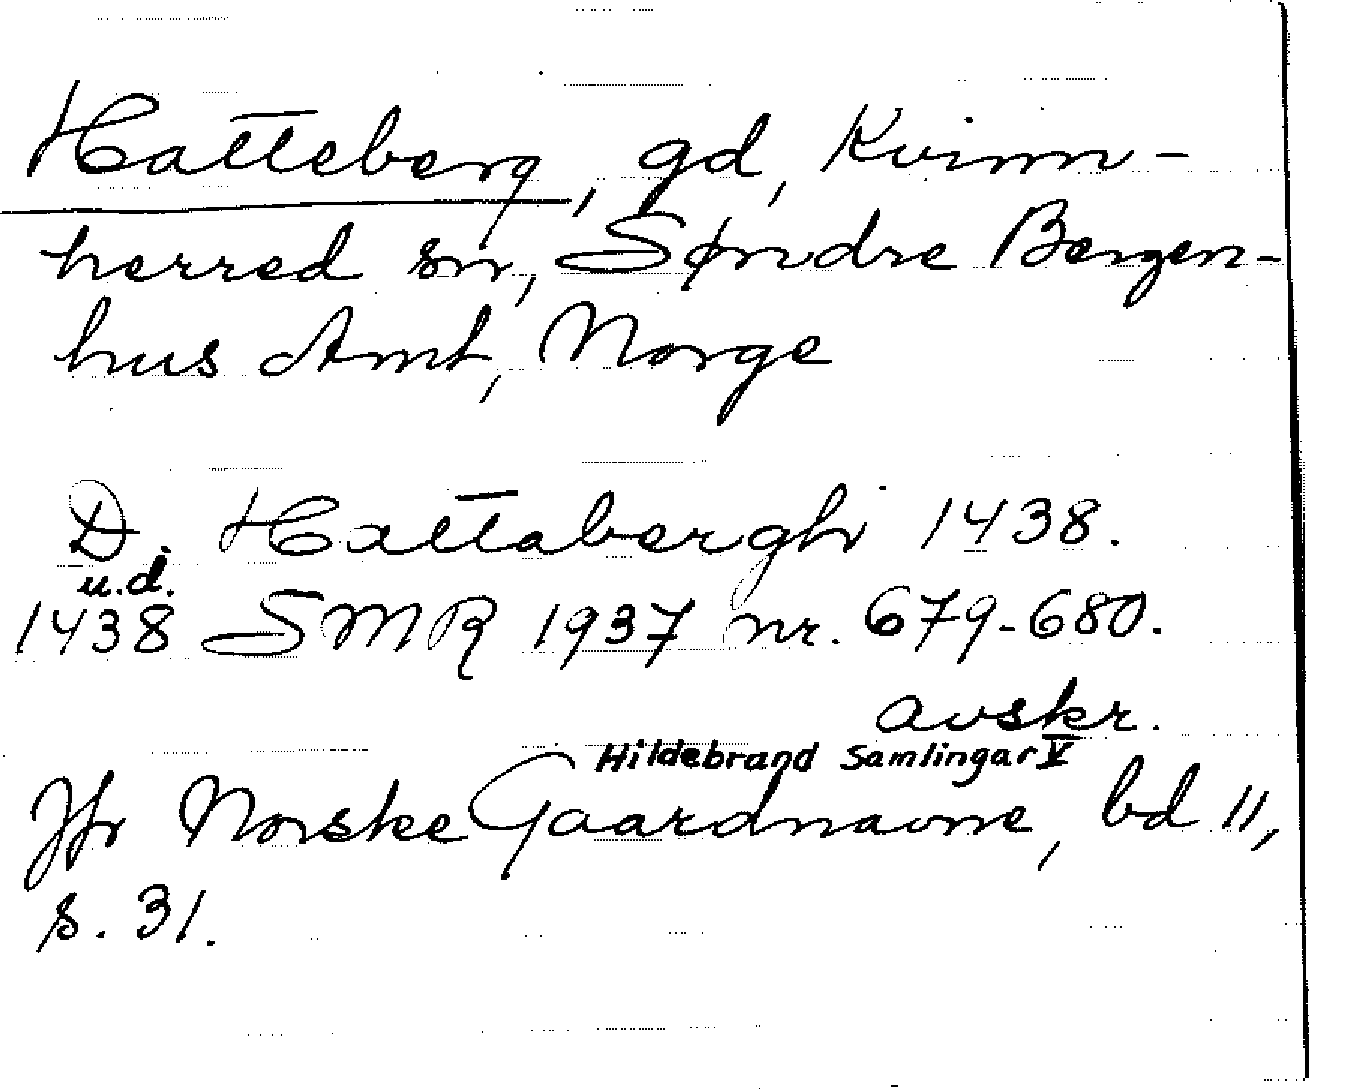 Hatteberg, gd, Kvinn-
herred sn, Søndre Bergen-
hus Amt, Norge
D. Hattaberghi 1438.
u.d.
1438 SMR 1937 nr. 679-680.
avskr.
Hildebrand Samlingar V
Jfr Norske Gaardnavne, bd 11,
s. 31.